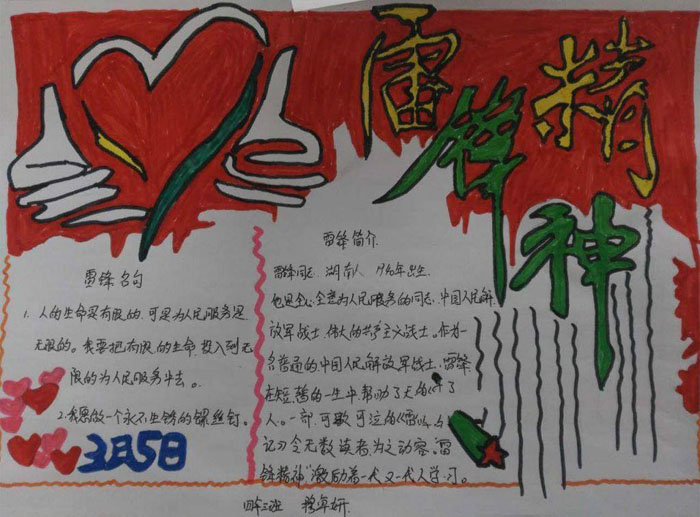 雷锋精神
雷锋名句
1. 人的生命是有限的，可是为人民服务是
无限的。我要把有限的生命，投入到无
限的为人民服务中去。
2.我愿做一个永不生锈的螺丝钉。
3月5日
雷锋简介
雷锋同志，湖南人，1940年出生，
他是全心全意为人民服务的同志，中国人民解
放军战士，伟大的共产主义战士。作为一
名普通的中国人民解放军战士，雷锋
在短暂的一生中帮助了无
人。一部可歌可泣的《雷锋日
记》令无数读者为之动容。雷
锋精神激励着一代又一代人学习。
四年三班